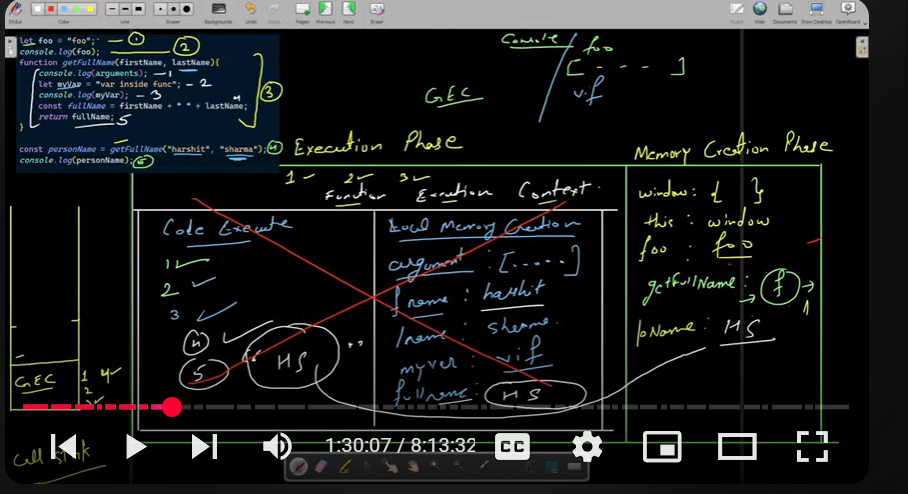 Stylus
Color
Line
Eraser
Backgrounds
Undo
Redo
Pages
Previous
Next
Erase
Board
Web
Documents
Show Desktop
OpenBoard
let foo = "foo"; — 1
console.log(foo); 2
function getFullName(firstName, lastName){
console.log(arguments); — 1
let myVar = "var inside func"; - 2
console.log(myVar); - 3
const fullName = firstName + " " + lastName; 4
return fullName; 5
}
3
const personName = getFullName("harshit", "sharma"); 4
console.log(personName); 5
Console
foo
[ - - - ]
v.i.f
GEC
Execution Phase
Memory Creation Phase
1 2 3
Function Execution Context
Code Execute
Local Memory Creation
1
2
3
4
5
HS
argument : [.....]
fname : harshit
lname : sharma
myver : v.i.f
fullname : HS
window : { }
this : window
foo : foo
getFullName : f
1
pName : HS
GEC
1 4
2
3
Call Stack
1:30:07 / 8:13:32
CC